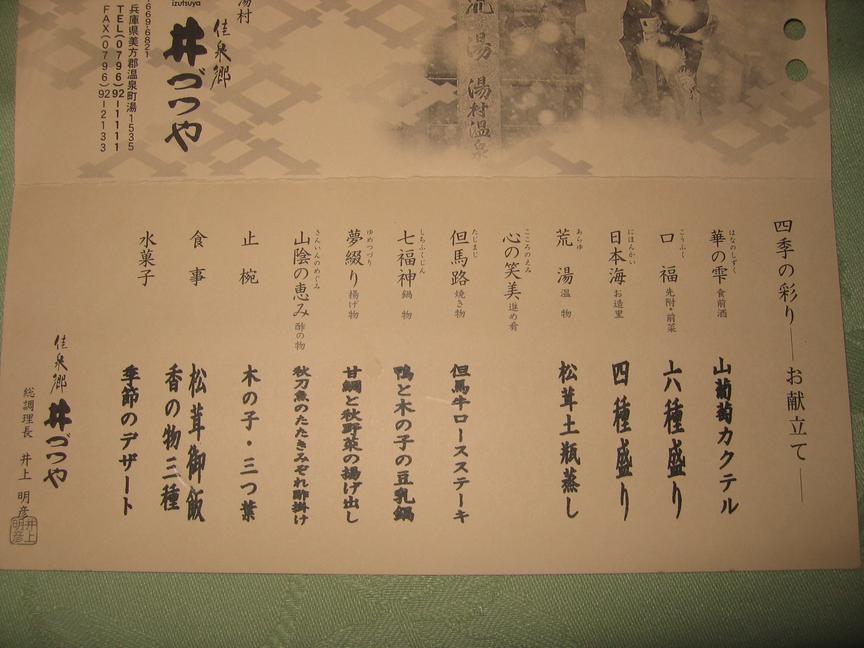 荒湯 湯村温泉
湯村
佳泉郷
izutsuya
井づつや
669-6821
兵庫県美方郡温泉町湯1535
TEL(0796)92-1111
FAX(0796)92-2133
四季の彩り――お献立て――
華の雫 はなのしずく 食前酒 山葡萄カクテル
口福 こうふく 先附・前菜 六種盛り
日本海 にほんかい お造里 四種盛り
荒湯 あらゆ 温物 松茸土瓶蒸し
心の笑美 こころのえみ 進め肴
但馬路 たじまじ 焼き物 但馬牛ロースステーキ
七福神 しちふくじん 鍋物 鴨と木の子の豆乳鍋
夢綴り ゆめつづり 揚げ物 甘鯛と秋野菜の揚げ出し
山陰の恵み さんいんのめぐみ 酢の物 秋刀魚のたたきみぞれ酢掛け
止椀 木の子・三つ葉
食事 松茸御飯
香の物三種
水菓子 季節のデザート
佳泉郷 井づつや
総調理長 井上 明彦
井上明彦